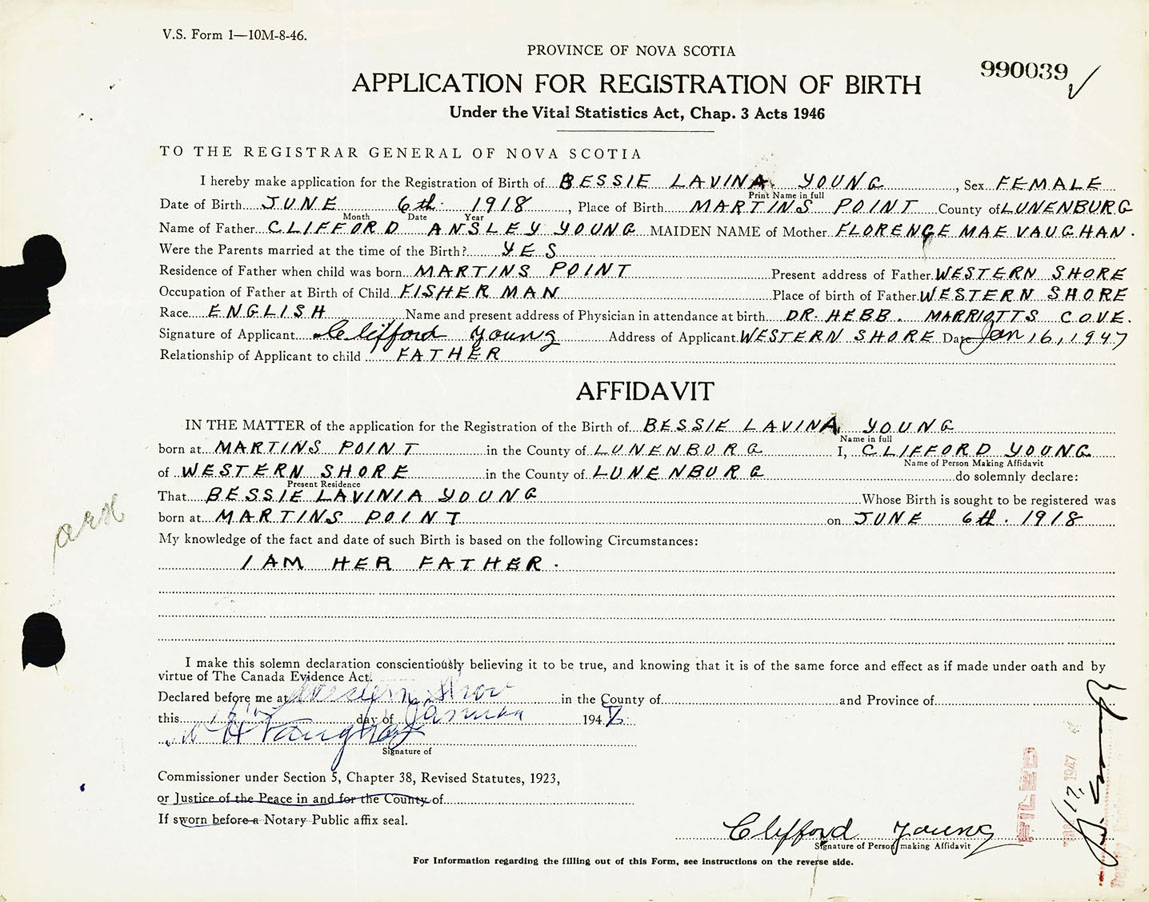 V.S. Form 1—10M-8-46.
PROVINCE OF NOVA SCOTIA
990039
APPLICATION FOR REGISTRATION OF BIRTH
Under the Vital Statistics Act, Chap. 3 Acts 1946
TO THE REGISTRAR GENERAL OF NOVA SCOTIA
I hereby make application for the Registration of Birth of BESSIE LAVINA YOUNG, Sex FEMALE
Print Name in full
Date of Birth JUNE 6th 1918, Place of Birth MARTINS POINT County of LUNENBURG
Month Date Year
Name of Father CLIFFORD ANSLEY YOUNG MAIDEN NAME of Mother FLORENCE MAE VAUGHAN.
Were the Parents married at the time of the Birth? YES
Residence of Father when child was born MARTINS POINT Present address of Father WESTERN SHORE
Occupation of Father at Birth of Child FISHERMAN Place of birth of Father WESTERN SHORE
Race ENGLISH Name and present address of Physician in attendance at birth DR. HEBB. MARRIOTTS COVE.
Signature of Applicant Clifford Young Address of Applicant WESTERN SHORE Date Jan 16, 1947
Relationship of Applicant to child FATHER
AFFIDAVIT
IN THE MATTER of the application for the Registration of the Birth of BESSIE LAVINA YOUNG
Name in full
born at MARTINS POINT in the County of LUNENBURG I, CLIFFORD YOUNG
Name of Person Making Affidavit
of WESTERN SHORE in the County of LUNENBURG do solemnly declare:
Present Residence
That BESSIE LAVINIA YOUNG Whose Birth is sought to be registered was
born at MARTINS POINT on JUNE 6th. 1918
My knowledge of the fact and date of such Birth is based on the following Circumstances:
I AM HER FATHER.
I make this solemn declaration conscientiously believing it to be true, and knowing that it is of the same force and effect as if made under oath and by
virtue of The Canada Evidence Act.
Declared before me at Western Shore in the County of and Province of
this day of 194
Vaughan
Signature of
Commissioner under Section 5, Chapter 38, Revised Statutes, 1923,
or Justice of the Peace in and for the County of
If sworn before a Notary Public affix seal.
Clifford Young
Signature of Person making Affidavit
For Information regarding the filling out of this Form, see instructions on the reverse side.
FILED
17 1947